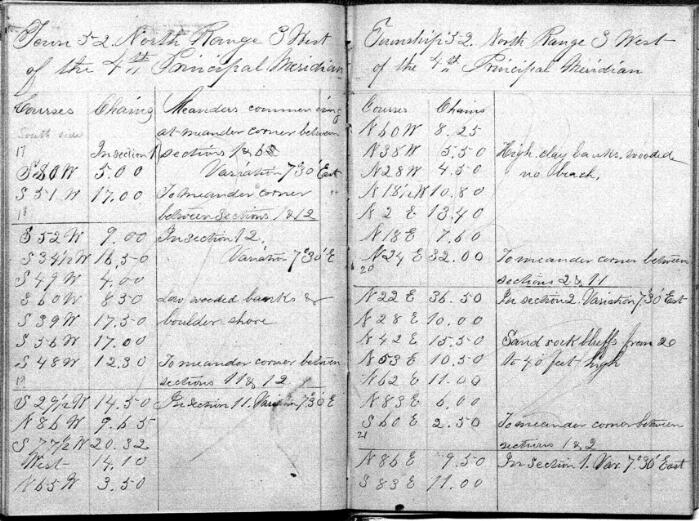 Town 52 North Range 3 West
of the 4th Principal Meridian
Courses Chains Meanders commencing
South side at meander corner between
17 In section 1 sections 1 & 6
S 80 W 5.00 Variation 7°30' East
S 51 W 17.00 To meander corner
18 between sections 1 & 12
S 52 W 9.00 In section 12.
S 34½ W 16.50 Variation 7°30' E
S 49 W 4.00
S 60 W 8.50 Low wooded banks &
S 39 W 17.50 boulder shore
S 56 W 17.00
S 48 W 12.30 To meander corner between
19 sections 11 & 12
S 29½ W 14.50 In Section 11. Variation 7°30' E
N 86 W 9.65
S 77½ W 20.32
West 14.10
N 65 W 3.50
Township 52. North Range 3 West
of the 4th Principal Meridian
Courses Chains
N 60 W 8.25
N 38 W 5.50 High clay banks, wooded
N 28 W 4.50 no beach,
N 18½ W 10.80
N 2 E 13.40
N 18 E 7.60
N 24 E 32.00 To meander corner between
20 sections 2 & 11
N 22 E 36.50 In section 2. Variation 7°30' East
N 28 E 10.00
N 42 E 15.50 Sand rock bluffs from 20
N 53 E 10.50 to 40 feet high
N 62 E 11.00
N 83 E 6.00
S 60 E 2.50 To meander corner between
21 sections 1 & 2
N 86 E 9.50 In Section 1. Var. 7°30' East
S 83 E 11.00